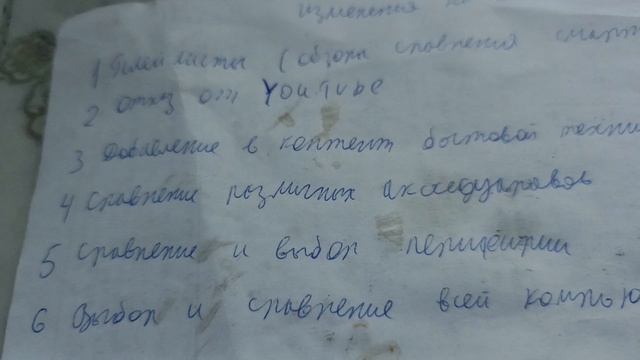 изменения
1 Плейлисты (обзоры сравнения смарт
2 отказ от YouTube
3 Добавление в контент бытовой техни
4 Сравнение различных аксессуаров
5 Сравнение и выбор периферии
6 Выбор и сравнение всей компью